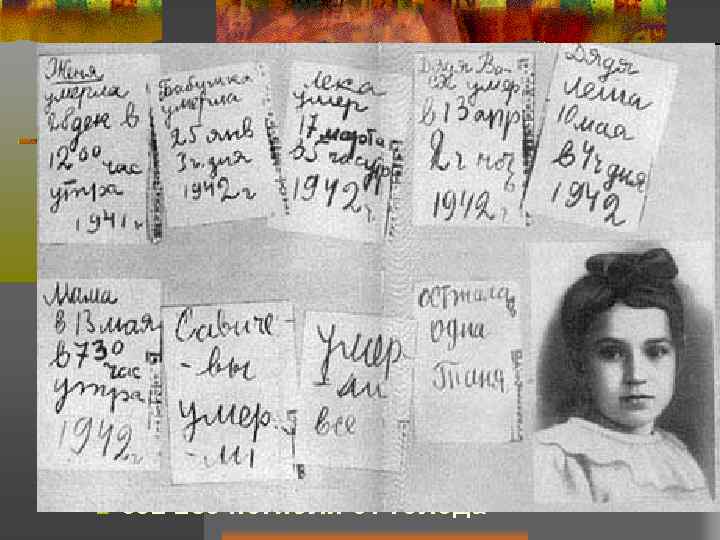 Женя
умерла
28 ден в
12 00 час
утра
1941 г
Бабушка
умерла
25 янв
3 ч. дня
1942 г
Лека
умер
17 марта
в 5 час утр
1942 г.
Дядя Ва-
ся умер
в 13 апр
2 ч ноч
в
1942 г
Дядя
Леша
10 мая
в 4 ч дня
1942
Мама
в 13 мая
в 7 30
час
утра
1942 г
Савиче-
-вы
умер.
-ли
умер
-ли
все
осталась
одна
Таня
от голода